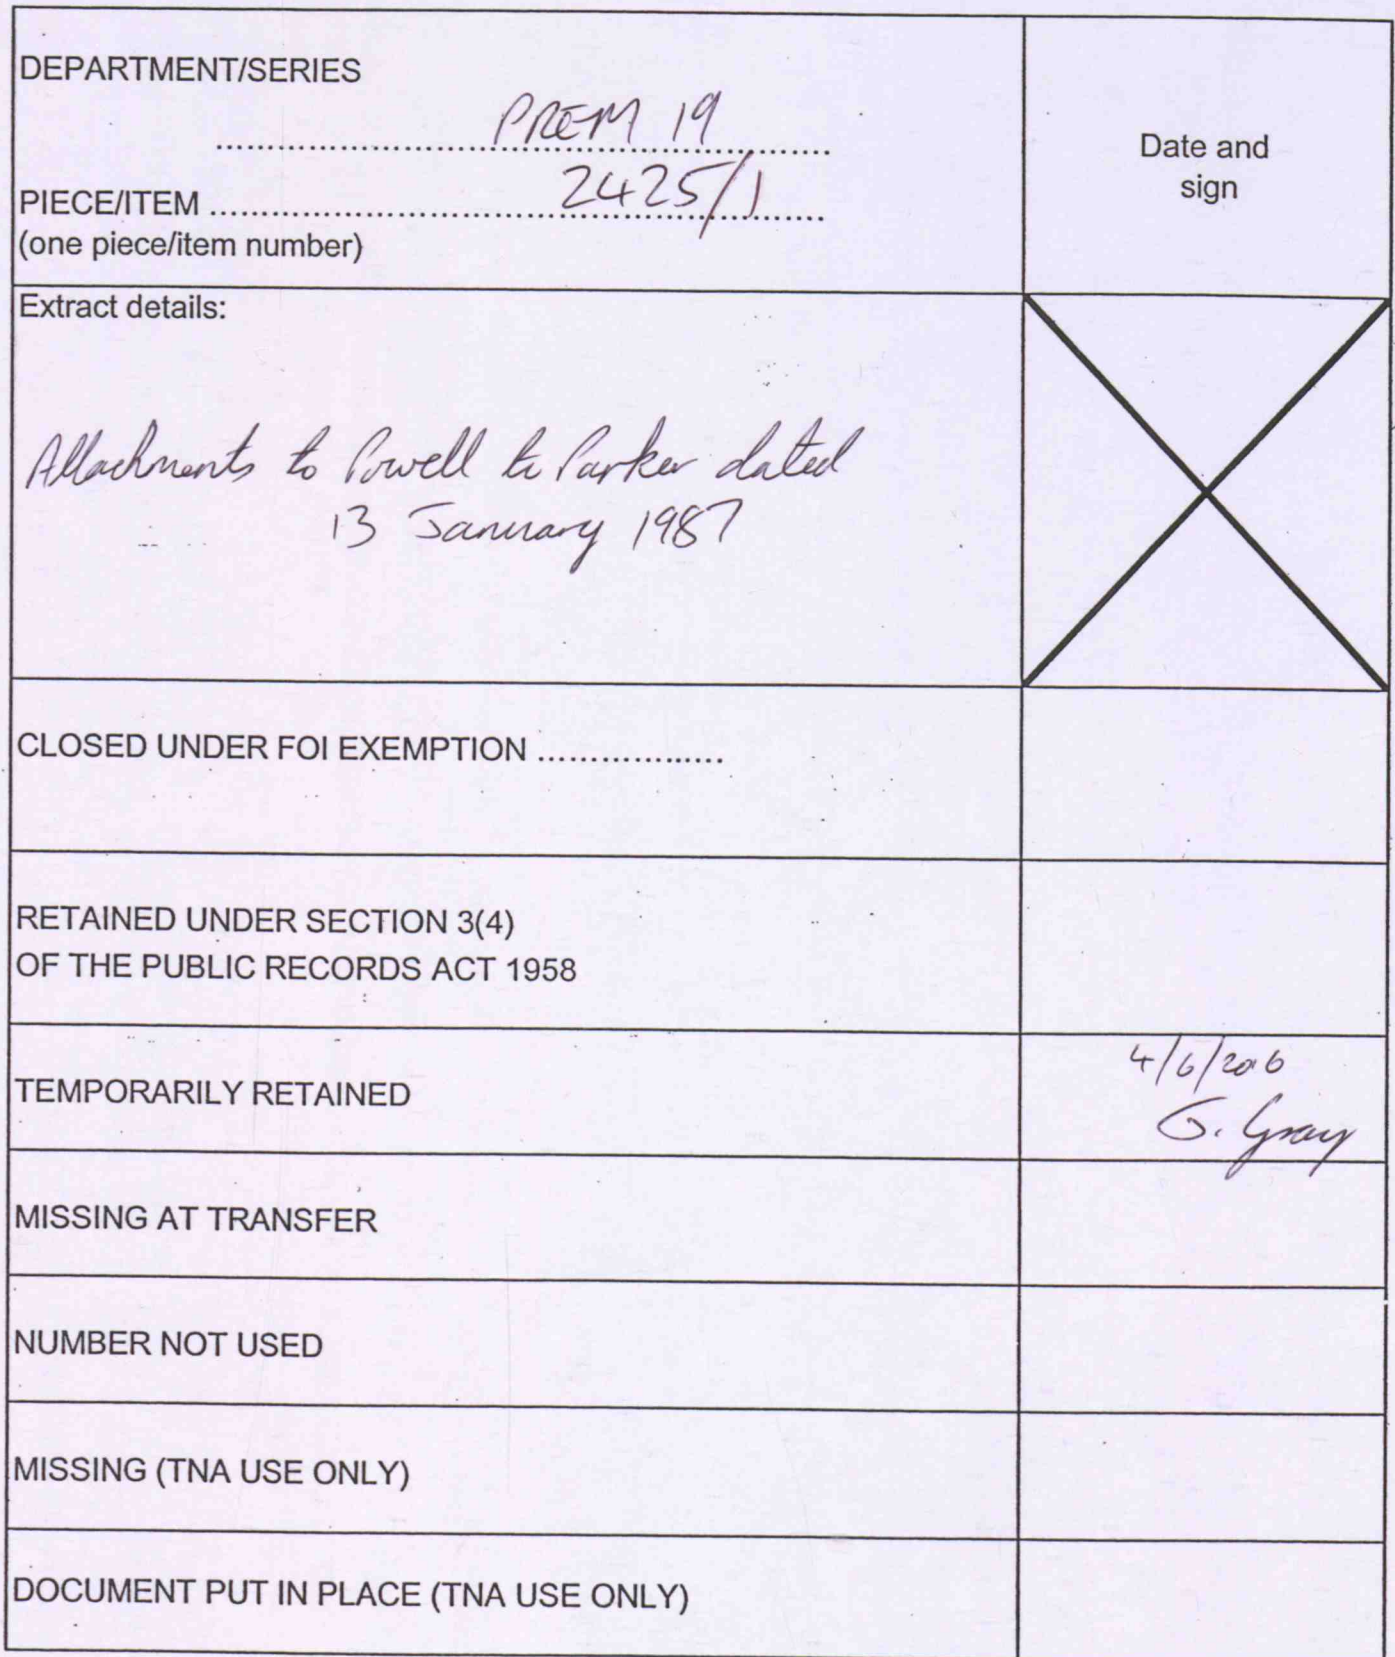 DEPARTMENT/SERIES
PREM 19
Date and
sign
2425/1
PIECE/ITEM
(one piece/item number)
Extract details:
Attachments to Powell to Parker dated
13 January 1987
CLOSED UNDER FOI EXEMPTION
RETAINED UNDER SECTION 3(4)
OF THE PUBLIC RECORDS ACT 1958
TEMPORARILY RETAINED
4/6/2016
G. Gray
MISSING AT TRANSFER
NUMBER NOT USED
MISSING (TNA USE ONLY)
DOCUMENT PUT IN PLACE (TNA USE ONLY)